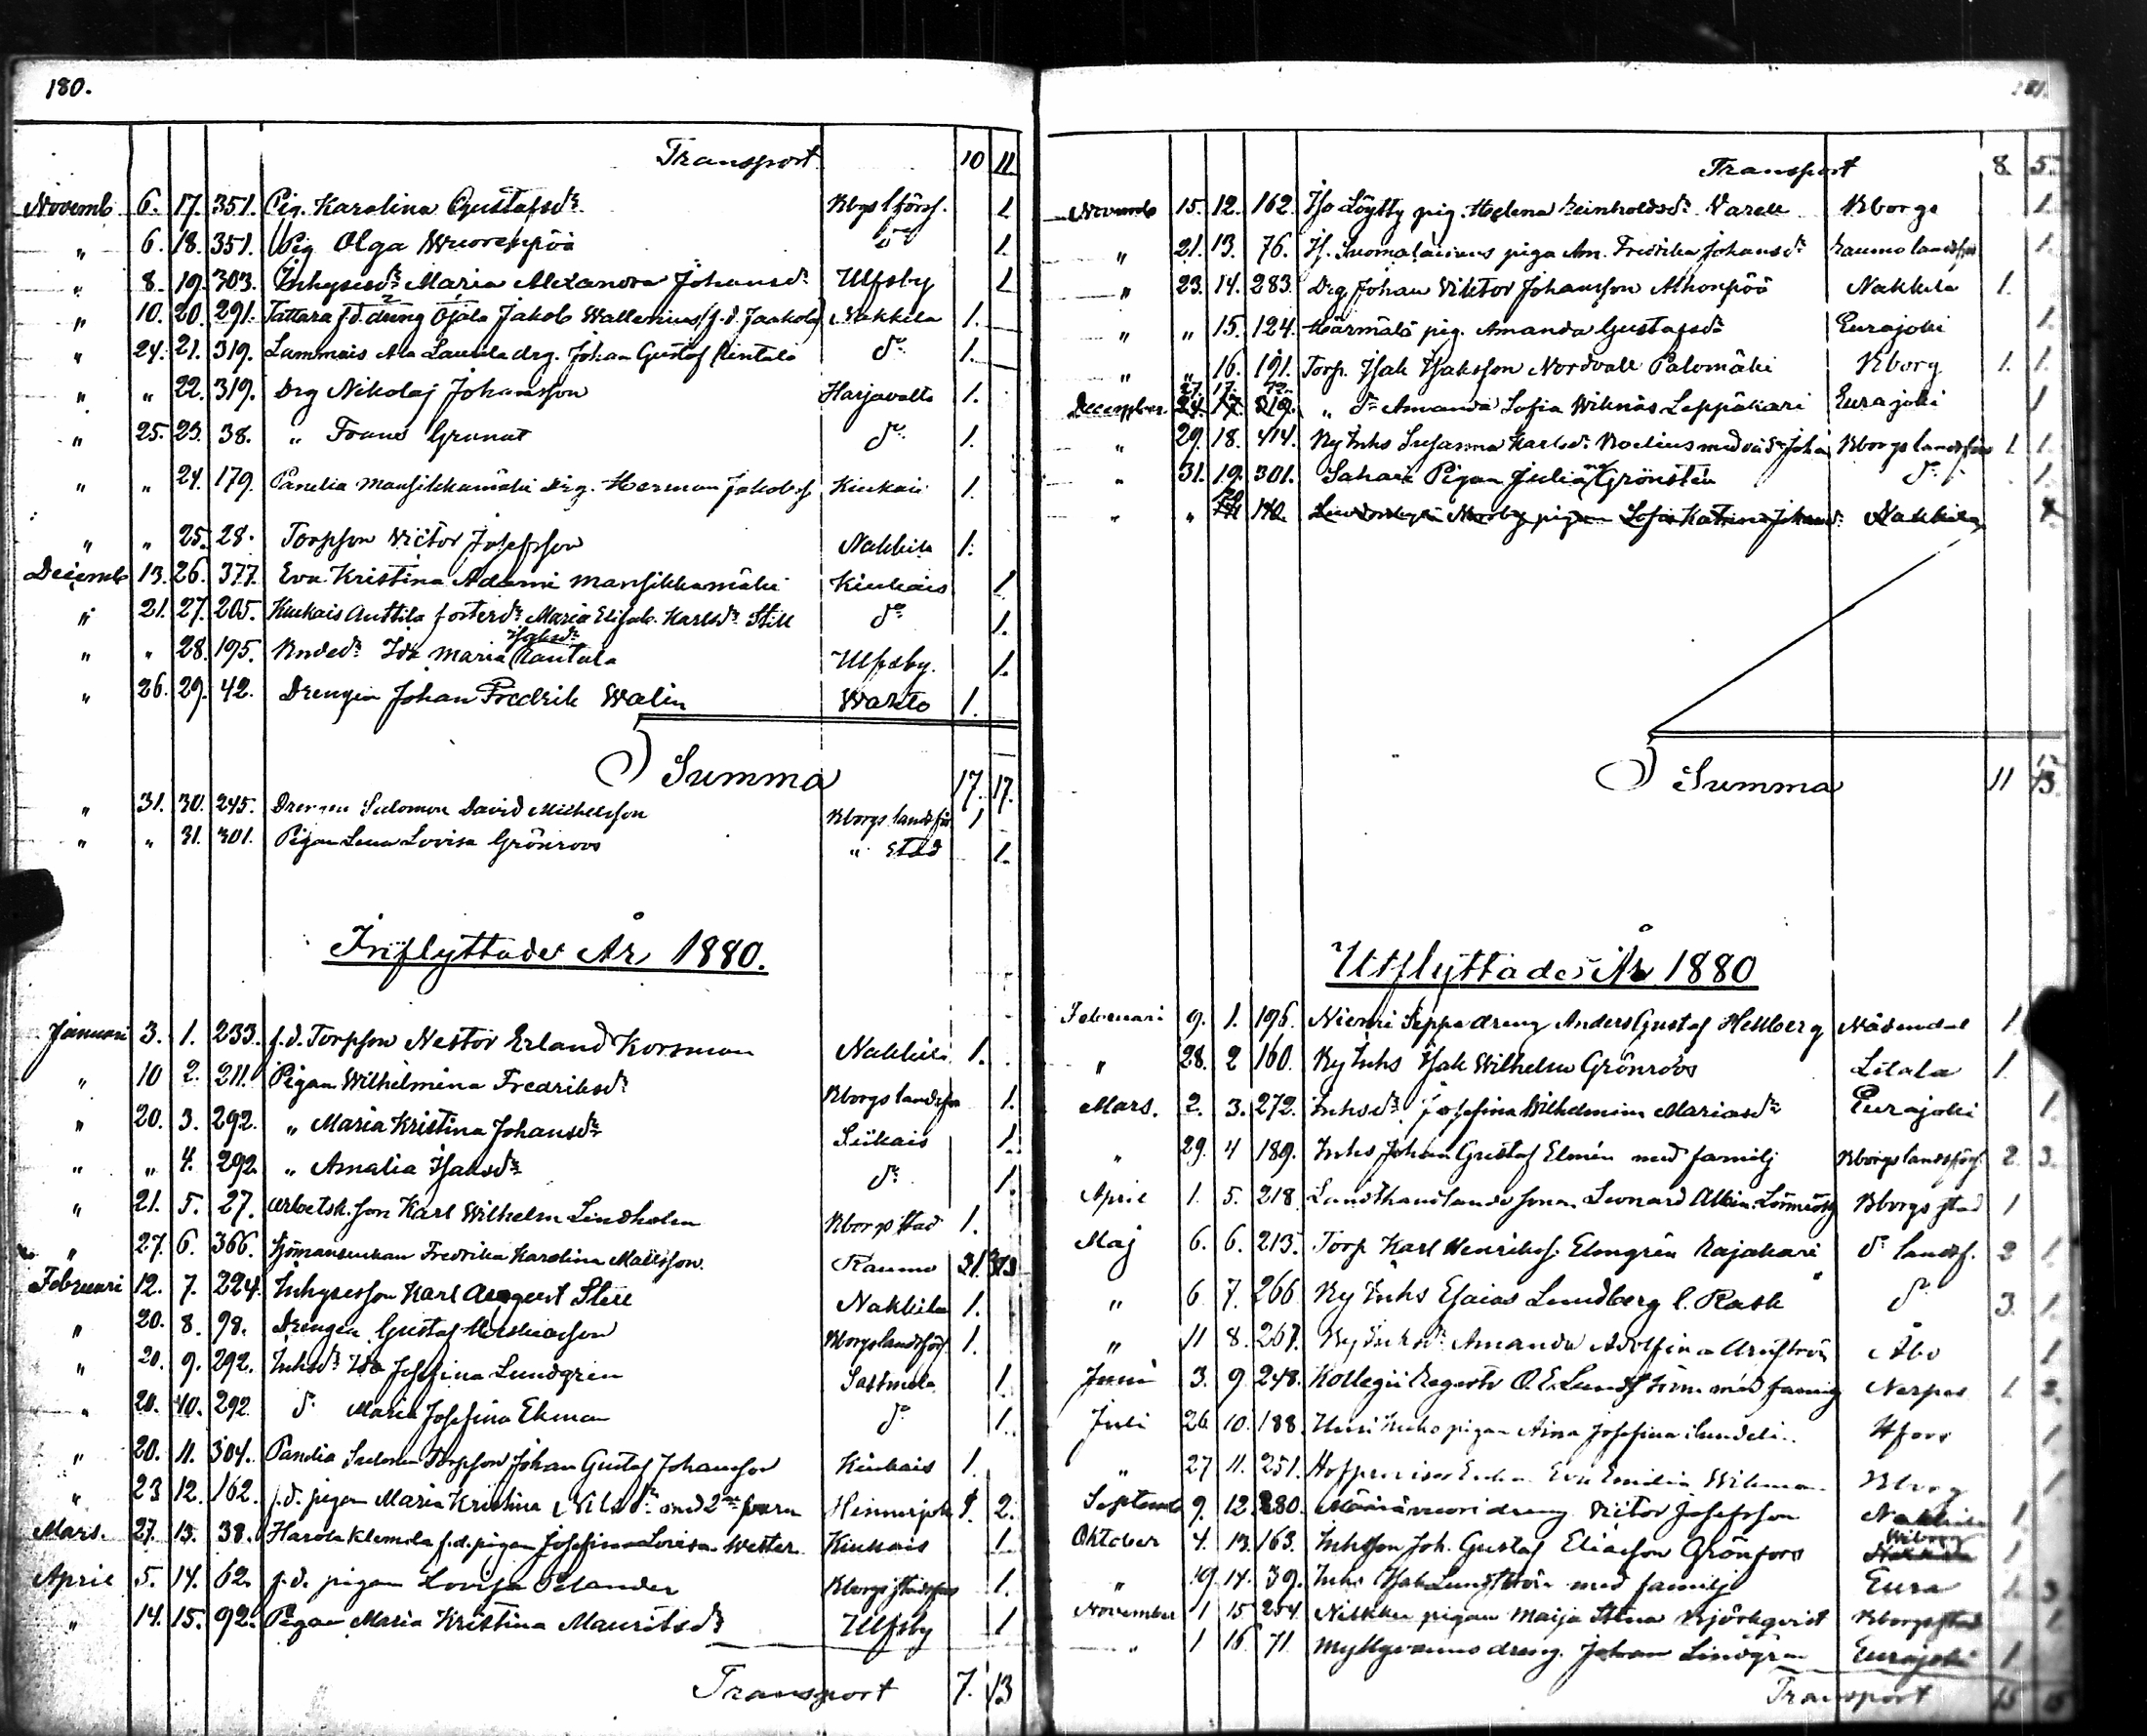 180.
Transport 10 11.
Novemb. 6. 17. 351. Pig. Karolina Gustafsdr. Bbgs lförs. 1
" 6. 18. 351. Pig Olga do 1.
" 8. 19. 303. Inhysesdr. Maria Alexandra Johansdr. Ulfsby 1
" 10. 20. 291. Tattara f.d. dreng Ojala Jakob Wallenius (f.d. Jaakola) Nakkila 1.
" 24. 21. 319. Lammais Ala Laurila drg. Johan Gustaf Rintala do. 1.
" " 22. 319. Drg Nikolaj Johansson Harjavalta 1.
" 25. 23. 38. " Frans Granat do. 1.
" " 24. 179. Panelia Mansikkamäki Drg. Herman Jakobsf Kiukais 1.
" " 25. 28. Torpson Victor Josefsson Nakkila 1.
Decemb 13. 26. 377. Eva Kristina Adami Mansikkamäki Kiukais 1.
" 21. 27. 205. Kiukais Anttila fosterdr. Maria Elisab. Karlsdr. Still do 1.
" " 28. 195. Bndedr. Ida Maria Isaksdr. Rantala Ulfsby. 1.
" 26. 29. 42. Drengen Johan Fredrik Walin Wahto 1.
Summa 17. 17.
" 31. 30. 245. Drengen Salomon David Michelsson Bborgs landsför 1
" " 31. 301. Pigan Lena Lovisa Grönroos " stad 1.
Inflyttade År 1880.
Januari 3. 1. 233. f.d. Torpson Nestor Erland Korsman Nakkila 1.
" 10 2. 211. Pigan Wilhelmina Fredriksdr. Bborgs landsför 1.
" 20. 3. 292. " Maria Kristina Johansdr. Siikais 1.
" " 4. 292 " Amalia Isaksdr. do. 1.
" 21. 5. 27. arbetsk. son Karl Wilhelm Lindholm Bborgs stad 1.
" 27. 6. 366. Sjömansenkan Fredrika Karolina Mattsson. Raumo
Februari 12. 7. 224. Inhysesson Karl August Stell Nakkila 1.
" 20. 8. 98. Drengen Gustaf Bborgs landsförs 1.
" 20. 9. 292. Inhsdr. Ida Josefina Lundgren Sastmola 1.
" 20. 10. 292 do Maria Josefina Ekman do 1.
" 20. 11. 304. Panelia Torpson Johan Gustaf Johansson Kiukais 1.
" 23 12. 162. f.d. pigan Maria Kristina Nilsdr. med 2ne barn Hinnerjoki 1. 2.
Mars. 27. 13. 38. Harola Klemola f.d. pigan Josefina Lovisa Wester Kiukais 1.
April 5. 14. 62. f.d. pigan Lovisa Pelander Bborgs 1.
" 14. 15. 92. Pigan Maria Kristina Mauritsdr Ulfsby 1
Transport 7. 13
181.
Transport 8. 5.
Novemb 15. 12. 162. Iso Löytty pig. Helena Reinholdsdr. Varell Bborgs 1.
" 21. 13. 76. If. Suomalainens piga Am. Fredrika Johansdr. Raumo landsför 1.
" 23. 14. 283. Drg Johan Viktor Johansson Alhonpää Nakkila 1.
" " 15. 124. Härmälä pig. Amanda Gustafsdr. Eurajoki 1.
" " 16. 191. Torp. Isak Isaksson Nordvall Palomäki Bborg 1. 1.
December 27. 17. 72. " dr. Amanda Sofia Wiknäs Leppäkari Eurajoki 1
" 29. 18. 414. Ny Inhs Susanna Karlsdr. med Bborgs landsför 1 1.
" 31. 19. 301. Sahari Pigan Julia Grönsten do. 1.
" " pigan Sofia Katrina Johansdr. Nakkila
Summa 11 13.
Utflyttades År 1880
Februari 9. 1. 196. Niemi Seppä dreng Anders Gustaf Hellberg Nådendal 1.
" 28. 2 160. Ny Inhs Isak Wilhelm Grönroos Letala 1.
Mars. 2. 3. 272. Inhsdr. Josefina Wilhelmina Mariasdr Eurajoki 1.
" 29. 4 189. Inhs Johan Gustaf Elmén med familj Bborgs landsförs 2. 3.
April 1. 5. 218 Landthandlande sonen Leonard Albin Bborgs stad 1
Maj 6. 6. 213. Torp Karl Henriksf. Elmgrén Rajakari do landsf. 2 1.
" 6 7. 266 Ny Inhs Esaias Lundberg l. Rask do 3. 1.
" 11 8. 267. Ny Inhsdr. Amanda Adolfina Åbo 1
Juni 3. 9 248. Kollegii Registr O. E. Lundström med familj Nerpes 1 2.
Juli 26. 10. 188. pigan Aina Josefina Hfors 1
" 27 11. 251. Eva Emilia Wikman Bborg 1
Septemb 9. 12. 280. dreng Victor Josefsson Nakkila 1
Oktober 4. 13. 163. Inhson Joh. Gustaf Eliasson Grönfors Wiborg 1
" 19. 14. 39. Inhs Isak Lundström med familj Eura 1. 3
November 1 15 254. pigan Maija Stina Björkqvist Bborgs stad 1
" 1 16 71 Myllyvainio dreng Johan Lindgren Eurajoki 1
Transport 15